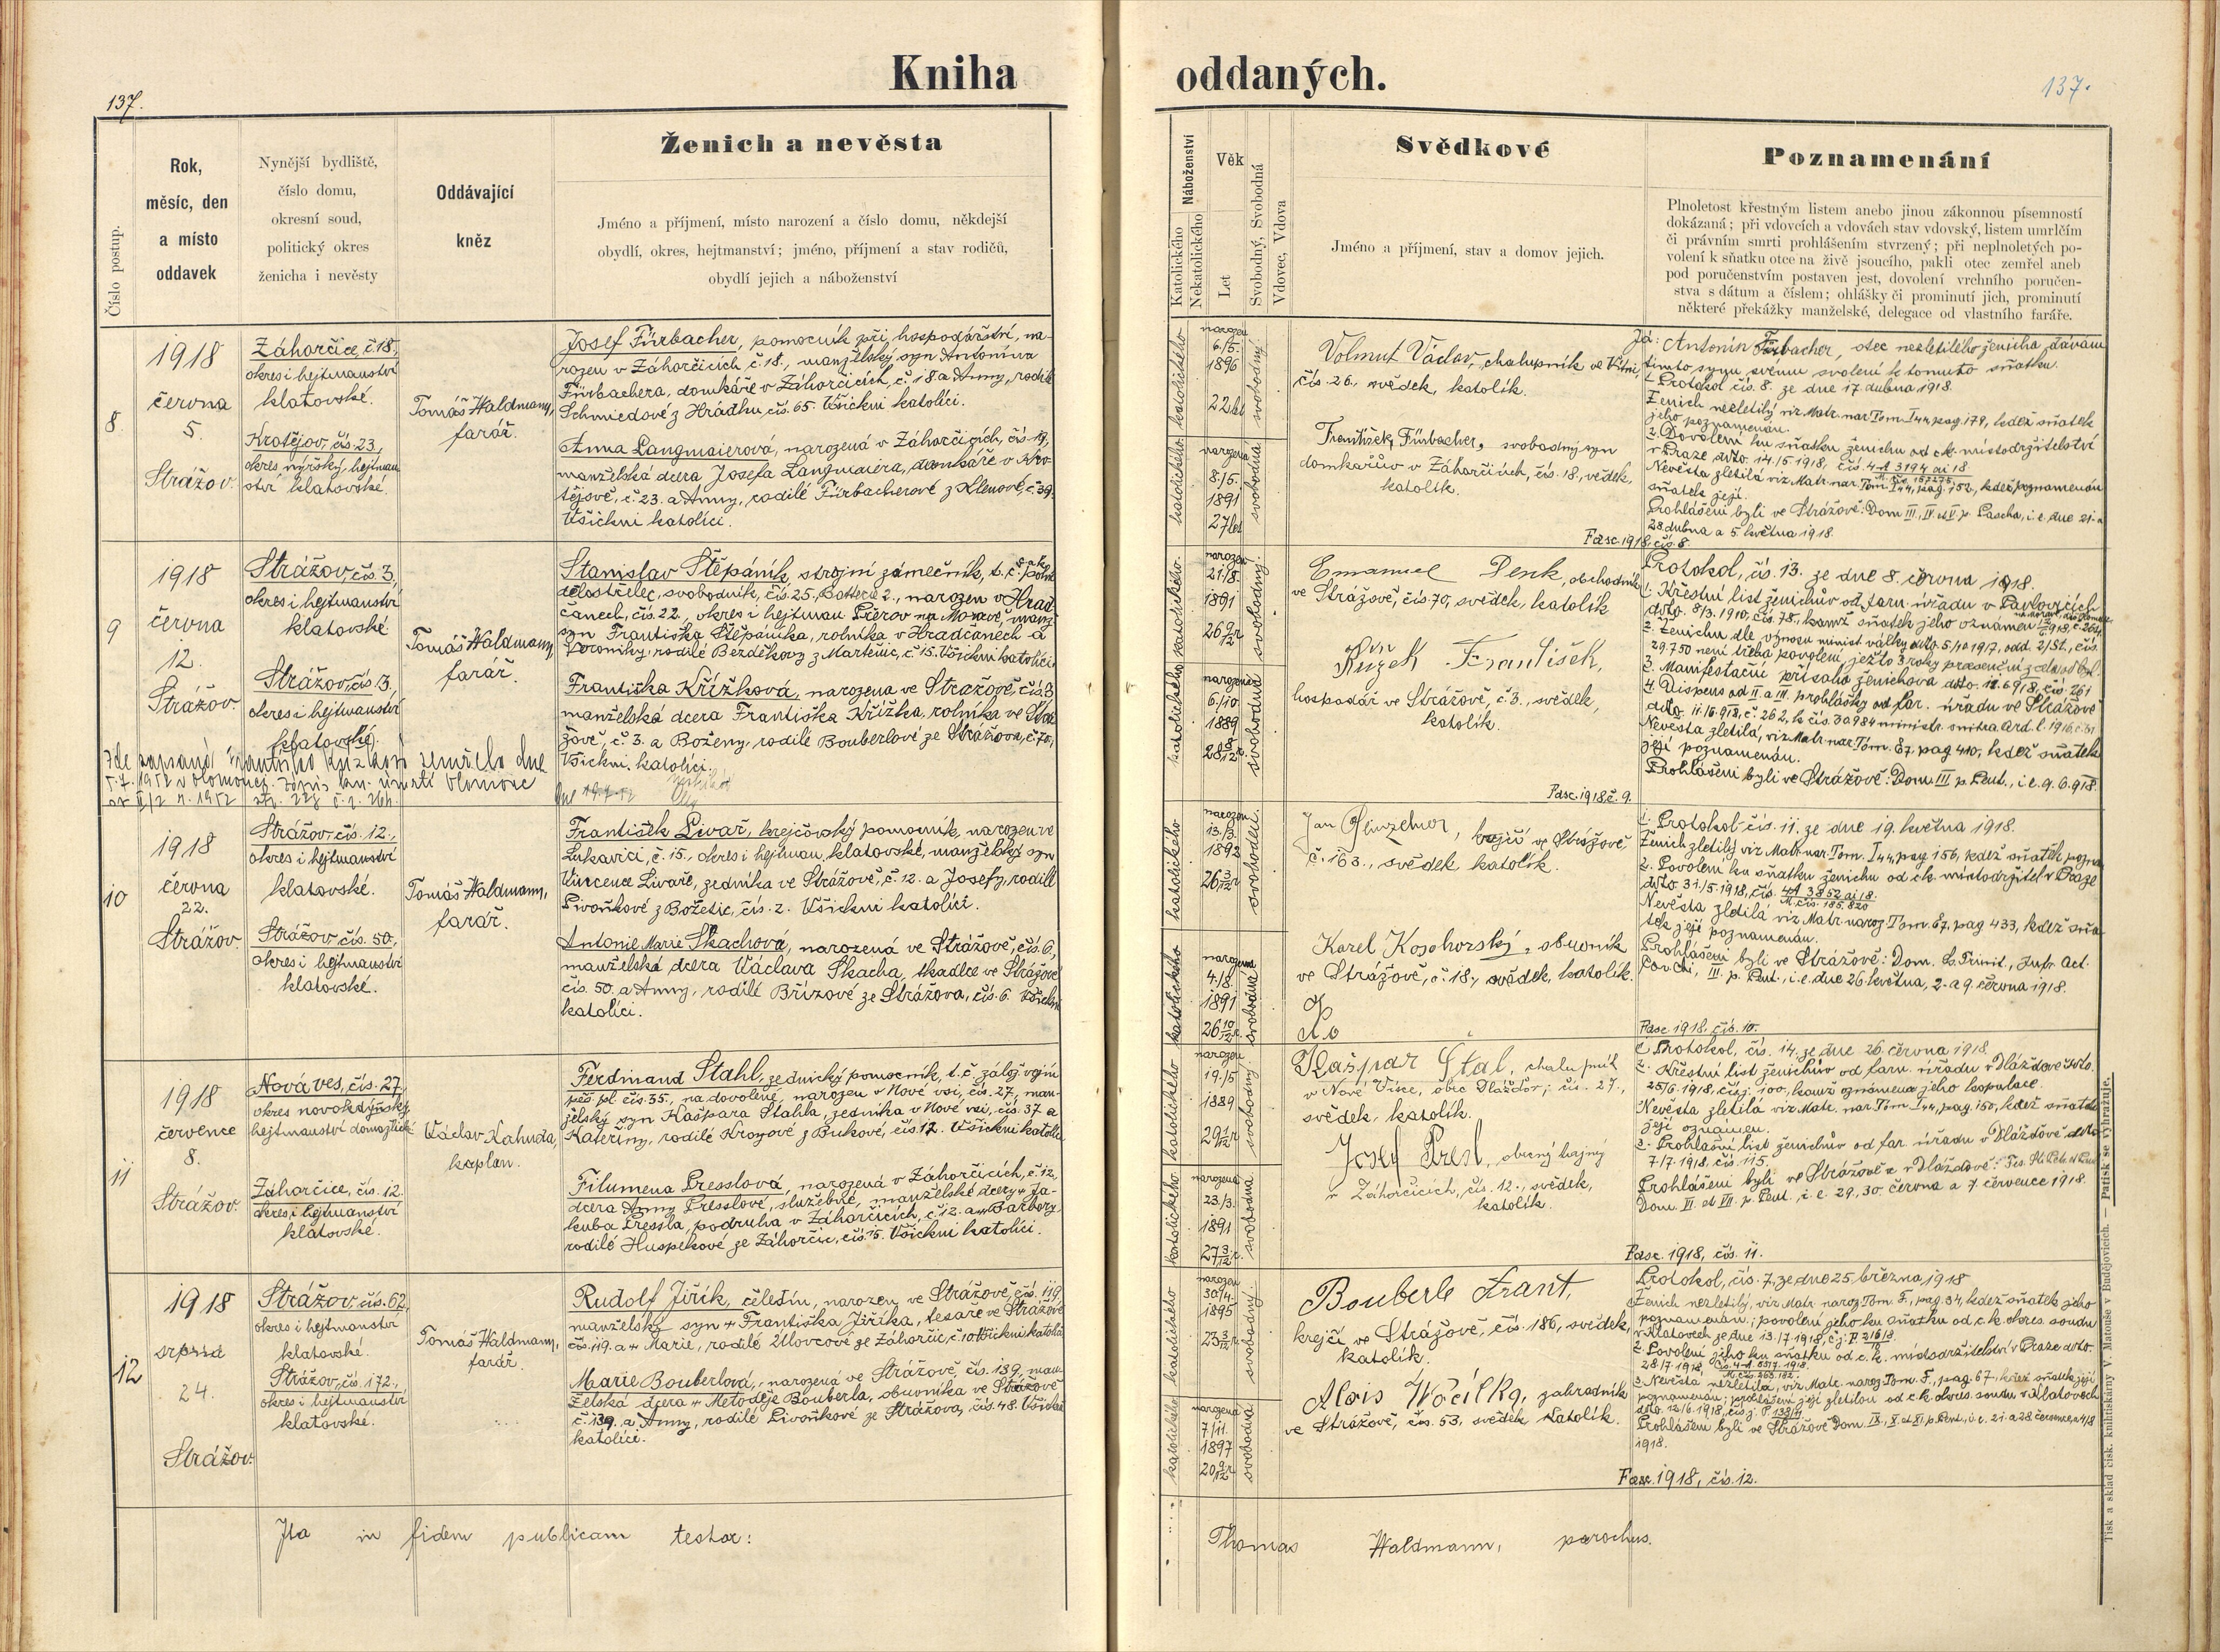 Kniha oddaných.
137.
137.
Číslo postup.
Rok,
měsíc, den
a místo
oddavek
Nynější bydliště,
číslo domu,
okresní soud,
politický okres
ženicha i nevěsty
Oddávající
kněz
Ženich a nevěsta
Jméno a příjmení, místo narození a číslo domu, někdejší
obydlí, okres, hejtmanství; jméno, příjmení a stav rodičů,
obydlí jejich a náboženství
Náboženství
Katolického
Nekatolického
Věk
Let
Svobodný, Svobodná
Vdovec, Vdova
Svědkové
Jméno a příjmení, stav a domov jejich.
Poznamenání
Plnoletost křestným listem anebo jinou zákonnou písemností
dokázaná; při vdovcích a vdovách stav vdovský, listem umrlčím
či právním smrti prohlášením stvrzený; při neplnoletých po-
volení k sňatku otce na živě jsoucího, pakli otec zemřel aneb
pod poručenstvím postaven jest, dovolení vrchního poručen-
stva s dátum a číslem; ohlášky či prominutí jich, prominutí
některé překážky manželské, delegace od vlastního faráře.
8
1918
června
5.
Strážov.
Záhorčice, č. 18,
okres i hejtmanství
klatovské.
Krotějov, čís. 23,
okres nýrský, hejtman
ství klatovské.
Tomáš Waldmann,
farář.
Josef Fürbacher, pomocník při hospodářství, na-
rozen v Záhorčicích č. 18., manželský syn Antonína
Fürbachera, domkáře v Záhorčicích, č. 18 a Anny, rodilé
Schmiedové z Hrádku, čís. 65. Všickni katolíci.
Anna Langmaierová, narozená v Záhorčicích, čís. 19,
manželská dcera Josefa Langmaiera, domkáře v Kro-
tějově, č. 23. a Anny, rodilé Fürbacherové z Klenové, č. 39.
Všickni katolíci.
katolického
narozen
6./5.
1896
22 let
svobodný
katolického
narozena
8./5.
1891
27 let
svobodná
Volmut Václav, chalupník ve Vítni,
čís. 26., svědek, katolík.
František Fürbacher, svobodný syn
domkářův v Záhorčicích, čís. 18., svědek,
katolík.
Já: Antonín Fürbacher, otec nezletilého ženicha dávám
tímto synu svému svolení k tomuto sňatku.
1. Protokol čís. 8. ze dne 17 dubna 1918.
Ženich nezletilý viz Matr. nar. Tom I 44, pag. 179, kdež sňatek
jeho poznamenán.
2. Dovolení ku sňatku ženichu od c.k. místodržitelství
v Praze dto. 14./5. 1918, čís. 4 A 3194 ai 18
Nevěsta zletilá viz Matr. nar. Tom. I 44, pag. 152, kdež poznamenán
sňatek její.
Prohlášeni byli ve Strážově: Dom III., IV. et V. p. Pascha, i. e. dne 21. a
28. dubna a 5. května 1918.
Fasc. 1918, čís. 8.
9
1918
června
12.
Strážov
Strážov, čís. 3,
okres i hejtmanství
klatovské
Strážov, čís. 3.
okres i hejtmanství
klatovské.
Tomáš Waldmann,
farář.
Stanislav Štěpáník, strojní zámečník, t. č. c. a k. polní
dělostřelec, svobodník, čís. 25., Batterie 2., narozen v Hrad-
čanech, čís. 22., okres i hejtman. Přerov na Moravě, manž.
syn Františka Štěpáníka, rolníka v Hradčanech a
Veroniky, rodilé Bezděkovy z Martenic, č. 15. Všickni katolíci.
Františka Křížková, narozena ve Strážově, čís. 3
manželská dcera Františka Křížka, rolníka ve Strá-
žově, č. 3. a Boženy, rodilé Bouberlové ze Strážova, č. 70,
Všickni katolíci.
Zde zapsaná Františka Křížková zemřela dne
5. 7. 1952 v Olomouci.
katolického.
narozen
21./8.
1891
26 9/12 r
svobodný.
katolického
narozena
6./10.
1889
28 8/12 r.
svobodná
Emanuel Denk, obchodník
ve Strážově, čís. 70, svědek, katolík
Křížek František,
hospodář ve Strážově, č. 3., svědek,
katolík.
Protokol, čís. 13. ze dne 8. června 1918.
1. Křestní list ženichův od farn. úřadu v Pavlovicích
dto. 8/3. 1910, čís. 78., kamž sňatek jeho oznámen
2. Ženichu dle výnosu minist. války dto. 5/10 1917, odd. 2/St., čís.
29.750 není třeba povolení, ježto 3 roky
3. Manifestační přísaha ženichova dto. 12. 6. 918, čís. 261
4. Dispens od II. a III. prohlášky od far. úřadu ve Strážově
Nevěsta zletilá, viz Matr. nar. Tom. E7, pag 410, kdež sňatek
její poznamenán.
Prohlášeni byli ve Strážově: Dom. III p. Pent., i. e. 9. 6. 918.
Fasc. 1918 č. 9.
10
1918
června
22.
Strážov
Strážov čís. 12.,
okres i hejtmanství
klatovské.
Strážov čís. 50.,
okres i hejtmanství
klatovské.
Tomáš Waldmann,
farář.
František Livař, krejčovský pomocník, narozen ve
Lukavici, č. 15., okres i hejtman. klatovské, manželský syn
Vincence Livaře, zedníka ve Strážově, č. 12. a Josefy, rodilé
Pivoňkové z Božetic, čís. 2. Všickni katolíci.
Antonie Marie Skachová, narozená ve Strážově, čís. 6,
manželská dcera Václava Skacha, tkadlce ve Strážově
čís. 50. a Anny, rodilé Břízové ze Strážova, čís. 6. Všickni
katolíci.
katolického
narozen
13./3.
1892
26 3/12 r
svobodný.
katolického
narozena
4./8.
1891
26 10/12 r.
svobodná
krejčí ve Strážově,
č. 163., svědek katolík.
Karel Kozohorský, obuvník
ve Strážově, č. 18., svědek, katolík.
1. Protokol čís. 11. ze dne 19. května 1918.
Ženich zletilý viz Matr. nar. Tom. I 44, pag 156, kdež sňatek pozna
2. Povolení ku sňatku ženichu od c.k. místodržitel. v Praze
dto. 31./5. 1918, čís. 4 A 3852 ai 18.
M. čís. 185.820
Nevěsta zletilá viz Matr. naroz. Tom. E7, pag 433, kdež sňa-
tek její poznamenán.
Prohlášeni byli ve Strážově: Dom. S. Trinit., Infr. Oct.
Cor. Chi., III. p. Pent., i. e. dne 26. května, 2. a 9. června 1918.
Fasc. 1918. čís. 10.
11
1918
července
8.
Strážov.
Nová ves, čís. 27,
okres novokdýňský,
hejtmanství domažlické
Záhorčice, čís. 12.
okres i hejtmanství
klatovské.
Václav Kahuda,
kaplan.
Ferdinand Stahl, zednický pomocník, t. č. zálož. vojín
pěš. pl. čís. 35., na dovolené, narozen v Nové vsi, čís. 27., man-
želský syn Kašpara Stahla, zedníka v Nové vsi, čís. 37. a
Kateřiny, rodilé Kroyové z Bukové, čís. 12. Všickni katolíci
Filumena Presslová, narozená v Záhorčicích, č. 12,
dcera Anny Presslové, služebné, manželské dcery + Ja-
kuba Pressla, podruha v Záhorčicích, č. 12. a + Barbory
rodilé Huspekové ze Záhorčic, čís. 15. Všickni katolíci.
katolického
narozen
19./5
1889
29 1/12 r
svobodný.
katolického
narozena
23/3.
1891
27 3/12 r.
svobodná
Kašpar Štal, chalupník
v Nové Vsi, obec Dlažďov, čís. 27.,
svědek, katolík.
Josef Presl, obecný hajný
v Záhorčicích, čís. 12., svědek,
katolík.
1. Protokol, čís. 14. ze dne 26. června 1918.
2. Křestní list ženichův od farn. úřadu v Dlažďově dto.
25/6. 1918, čís. j. 100, kamž oznámena jeho kopulace.
Nevěsta zletilá viz Matr. nar. Tom I 44, pag. 150, kdež sňatek
její oznámen.
3. Prohlašní list ženichův od far. úřadu v Dlažďově dto
7/7. 1918, čís. 115.
Prohlášeni byli ve Strážově a v Dlažďově: Fes. St. Petr. et Paul
Dom. VI. et VII. p. Pent., i. e. 29., 30. června a 7. července 1918.
Fasc. 1918, čís. 11.
12
1918
srpna
24.
Strážov.
Strážov, čís. 62,
okres i hejtmanství
klatovské.
Strážov, čís. 172.,
okres i hejtmanství
klatovské.
Tomáš Waldmann,
farář.
Rudolf Jiřík, čeledín, narozen ve Strážově, čís. 119,
manželský syn + Františka Jiříka, tesaře ve Strážově
čís. 119. a + Marie, rodilé Ullovcové ze Záhorčic, č. 10. Všickni katolíci
Marie Bouberlová, narozená ve Strážově, čís. 139, man-
želská dcera + Metoděje Bouberla, obuvníka ve Strážově
č. 139. a Anny, rodilé Pivoňkové ze Strážova, čís. 48. Všickni
katolíci.
katolického
narozen
30/4.
1895
23 3/12 r.
svobodný.
katolického
narozena
7/11.
1897
20 9/12 r
svobodná
Bouberle Frant.,
krejčí ve Strážově, čís. 186, svědek,
katolík.
Alois Wočilka, zahradník
ve Strážově, čís. 53, svědek katolík.
Protokol, čís. 7, ze dne 25. března 1918
Ženich nezletilý, viz Matr. naroz. Tom. F., pag. 34, kdež sňatek jeho
poznamenán; povolení jeho ku sňatku od c. k. okres. soudu
v Klatovech ze dne 13./7 1918, č. j. P 216/8
2. Povolení jeho ku sňatku od c. k. místodržitelství v Praze dto.
28./7. 1918
3. Nevěsta nezletilá, viz Matr. naroz. Tom. F., pag. 67., kdež sňatek její
poznamenán; prohlášení její zletilou od c. k. okres. soudu v Klatovech
Prohlášeni byli ve Strážově Dom. IX., X. et XI. p. Pent., i. e. 21. a 28. července a 4/8
1918.
Fasc. 1918, čís. 12.
Ita in fidem publicam testor:
Thomas Waldmann, parochus.
Tisk a sklad čísk. knihtiskárny V. Matouše v Budějovicích. — Patisk se vyhražuje.